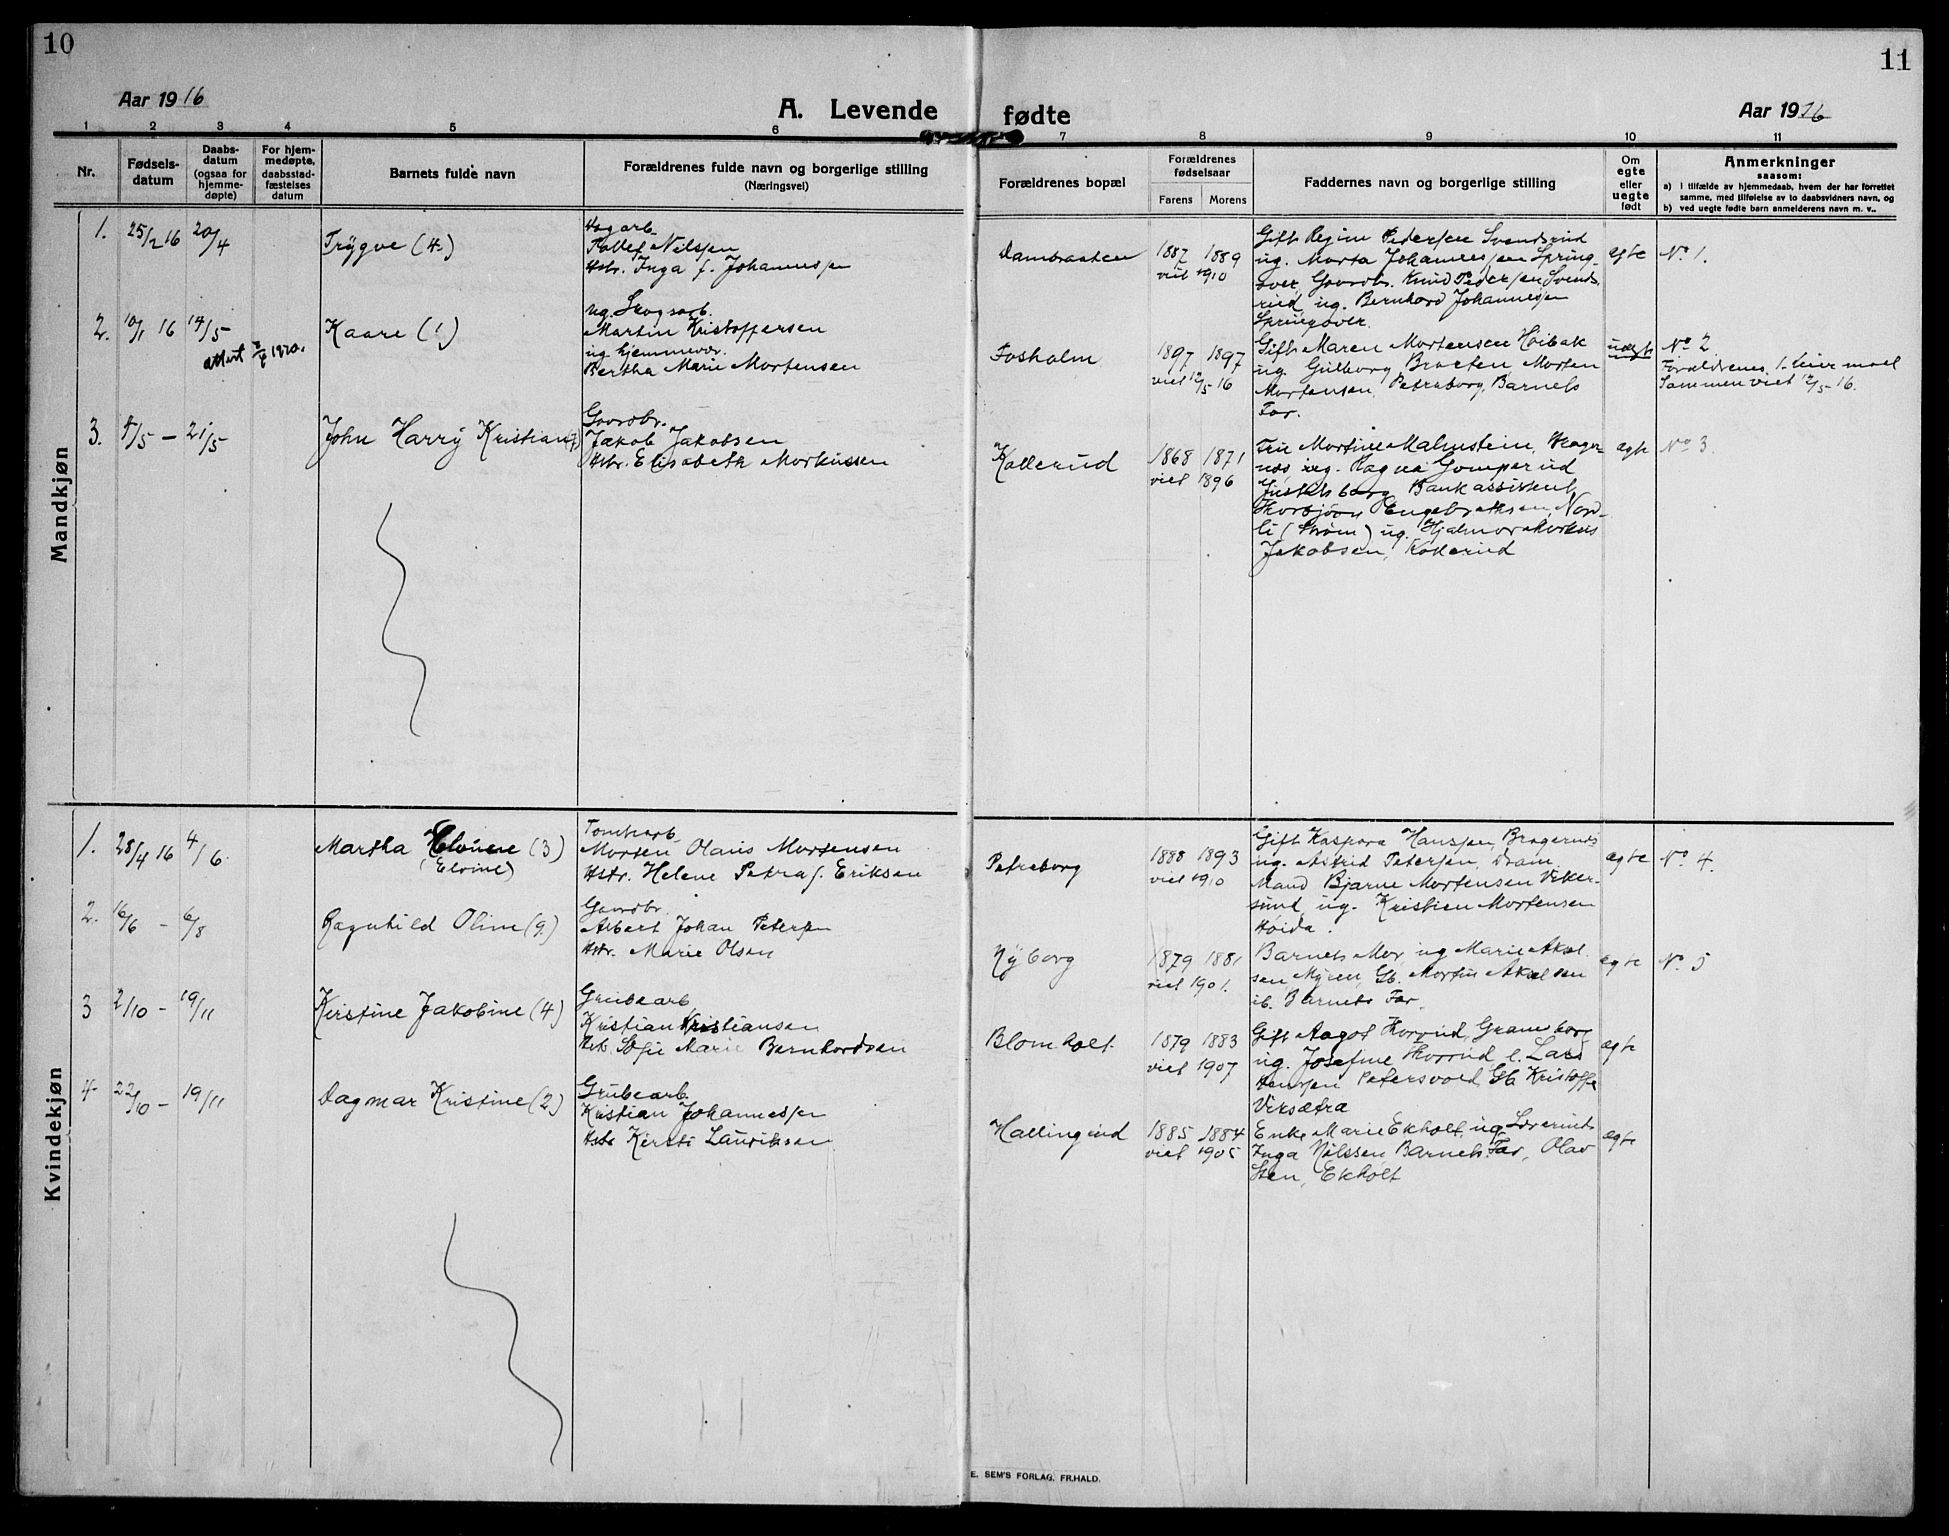 10
Aar 1916
A. Levende
1 2 3 4 5 6
Nr.
Fødsels-
datum
Daabs-
datum
(ogsaa for
hjemme-
døpte)
For hjem-
medøpte,
daabsstad-
fæstelses
datum
Barnets fulde navn
Forældrenes fulde navn og borgerlige stilling
(Næringsvei)
Mandkjøn
1. 25/2 16 20/4
Trygve (4.)
Nilssen
Hstr. Inga f. Johannessen
2. 10/1 16 14/5
attest 1920.
Kaare (1.)
ug. Skogsarb.
Martin Kristoffersen
ug. hjemmevær.
Bertha Marie Mortensen
3. 5/5 – 21/5
John Harry Kristian
Gaardbr.
Jakob Jakobsen
Hstr. Elisabeth Markussen
Kvindekjøn
1. 28/4 16 4/6
Martha Elvine (3)
(Elvine)
Tomtearb
Morten Olaus Mortensen
Hstr. Helene Petra f. Eriksen
2. 16/6 – 6/8
Ragnhild Oline (9.)
Gaardbr.
Albert Johan Petersen
Hstr. Marie Olsen
3 2/10 – 19/11
Kirstine Jakobine (4)
Grubearb
Kristian Kristiansen
Hstr. Sofie Marie Bernhardsen
4 22/10 – 19/11
Dagmar Kristine (2)
Grubearb.
Kristian Johannessen
Hstr Kirsti Lauriksen
11
fødte
Aar 1916
7 8 9 10 11
Forældrenes bopæl
Forældrenes
fødselsaar
Farens Morens
Faddernes navn og borgerlige stilling
Om
egte
eller
uegte
født
Anmerkninger
saasom:
a) i tilfælde av hjemmedaab, hvem der har forrettet
samme, med tilføielse av to daabsvidners navn, og
b) ved uegte fødte barn anmelderens navn m. v..
Dambraaten
1887 1889
viet 1910
Gift Regine Pedersen Svendsrud
ug. Marta Johannessen Spring-
over, Gaardbr. Knud Pedersen Svends-
rud, ug. Bernhard Johannessen
Springover.
egte
No 1.
Fosholm
1897 1897
viet 12/5 16
Gift Maren Mortensen Høibak
ug. Gulborg Braaten Morten
Mortensen, Petraborg, Barnets
Far.
uegte
No 2
Forældrenes 1. leiermaal
Sammenviet 12/5-16.
Kollerud
1868 1871
viet 1896
Fru Martine Malmstein, Brager-
næs, ug. Ragna Gomperud
Gustadsborg, Bankassistent
Thorbjørn Engebrethsen, Nord-
li (Strøm) ug. Hjalmar Markus
Jakobsen, Kollerud
egte
No 3.
Petraborg
1888 1893
viet 1910
Gift Kaspara Hanssen, Bragernes
ug. Astrid Petersen, Dram.
Mand Bjarne Mortensen Viker-
sund, ug. Kristian Mortensen
Høida.
egte
No. 4.
Nyborg
1879 1881
viet 1901.
Barnets Mor, ug Marie Aksel-
sen, Myren, Gb. Martin Akselsen
ib. Barnets Far.
egte
No. 5
Blomholt
1879 1883
viet 1907
Gift Aagot Horrud, Gramsborg
ug. Josefine Thorrud e. Lars
Hanssen Petersvold, Gb. Kristoffer
Viksætra
egte
Hallingrud
1885 1884
viet 1905
Enke Marie Ekholt, ug
Inga Nilssen, Barnets Far, Olav
Sten, Ekholt
egte
E. SEM'S FORLAG. FR.HALD.